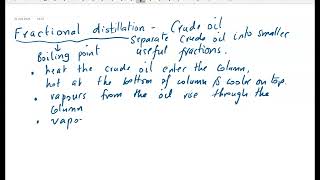 Fractional distillation - Crude oil
separate crude oil into smaller
Boiling point useful fractions.
• heat the crude oil enter the column,
hot at the bottom of column is cooler on top.
• vapours from the oil rise through the
column
• vapo-